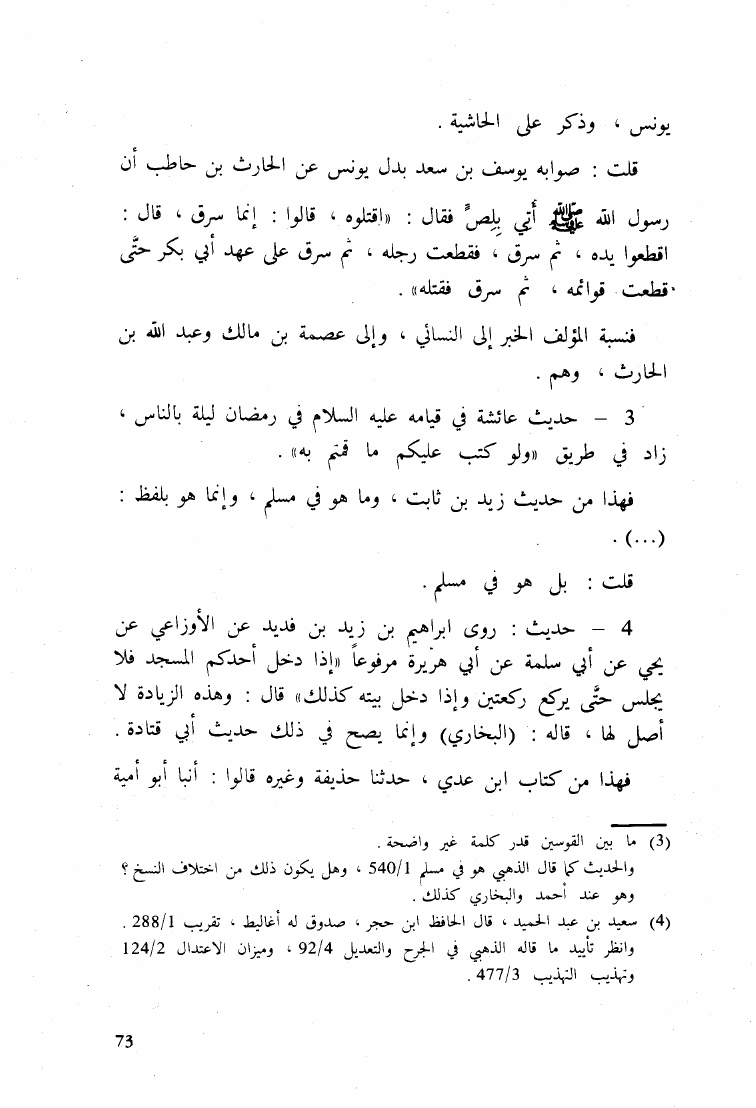 يونس ، وذكر على الحاشية .
قلت : صوابه يوسف بن سعد بدل يونس عن الحارث بن حاطب أن
رسول الله ﷺ أُتي بِلِصٍّ فقال : «اقتلوه ، قالوا : إنما سرق ، قال :
اقطعوا يده ، ثم سرق ، فقطعت رجله ، ثم سرق على عهد أبي بكر حتَّى
قطعت قوائمه ، ثم سرق فقتله» .
فنسبة المؤلف الخبر إلى النسائي ، وإلى عصمة بن مالك وعبد الله بن
الحارث ، وهم .
3 – حديث عائشة في قيامه عليه السلام في رمضان ليلة بالناس ،
زاد في طريق «ولو كتب عليكم ما قمتم به» .
فهذا من حديث زيد بن ثابت ، وما هو في مسلم ، وإنما هو بلفظ :
(...) .
قلت : بل هو في مسلم .
4 – حديث : روى ابراهيم بن زيد بن فديد عن الأوزاعي عن
يحي عن أبي سلمة عن أبي هريرة مرفوعاً «إذا دخل أحدكم المسجد فلا
يجلس حتَّى يركع ركعتين وإذا دخل بيته كذلك» قال : وهذه الزيادة لا
أصل لها ، قاله : (البخاري) وإنما يصح في ذلك حديث أبي قتادة .
فهذا من كتاب ابن عدي ، حدثنا حذيفة وغيره قالوا : أنبا أبو أمية
(3) ما بين القوسين قدر كلمة غير واضحة .
والحديث كما قال الذهبي هو في مسلم 540/1 ، وهل يكون ذلك من اختلاف النسخ ؟
وهو عند أحمد والبخاري كذلك .
(4) سعيد بن عبد الحميد ، قال الحافظ ابن حجر ، وصدوق له أغاليط ، تقريب 288/1 .
وانظر تأييد ما قاله الذهبي في الجرح والتعديل 92/4 ، وميزان الاعتدال 124/2
وتهذيب التهذيب 477/3 .
73